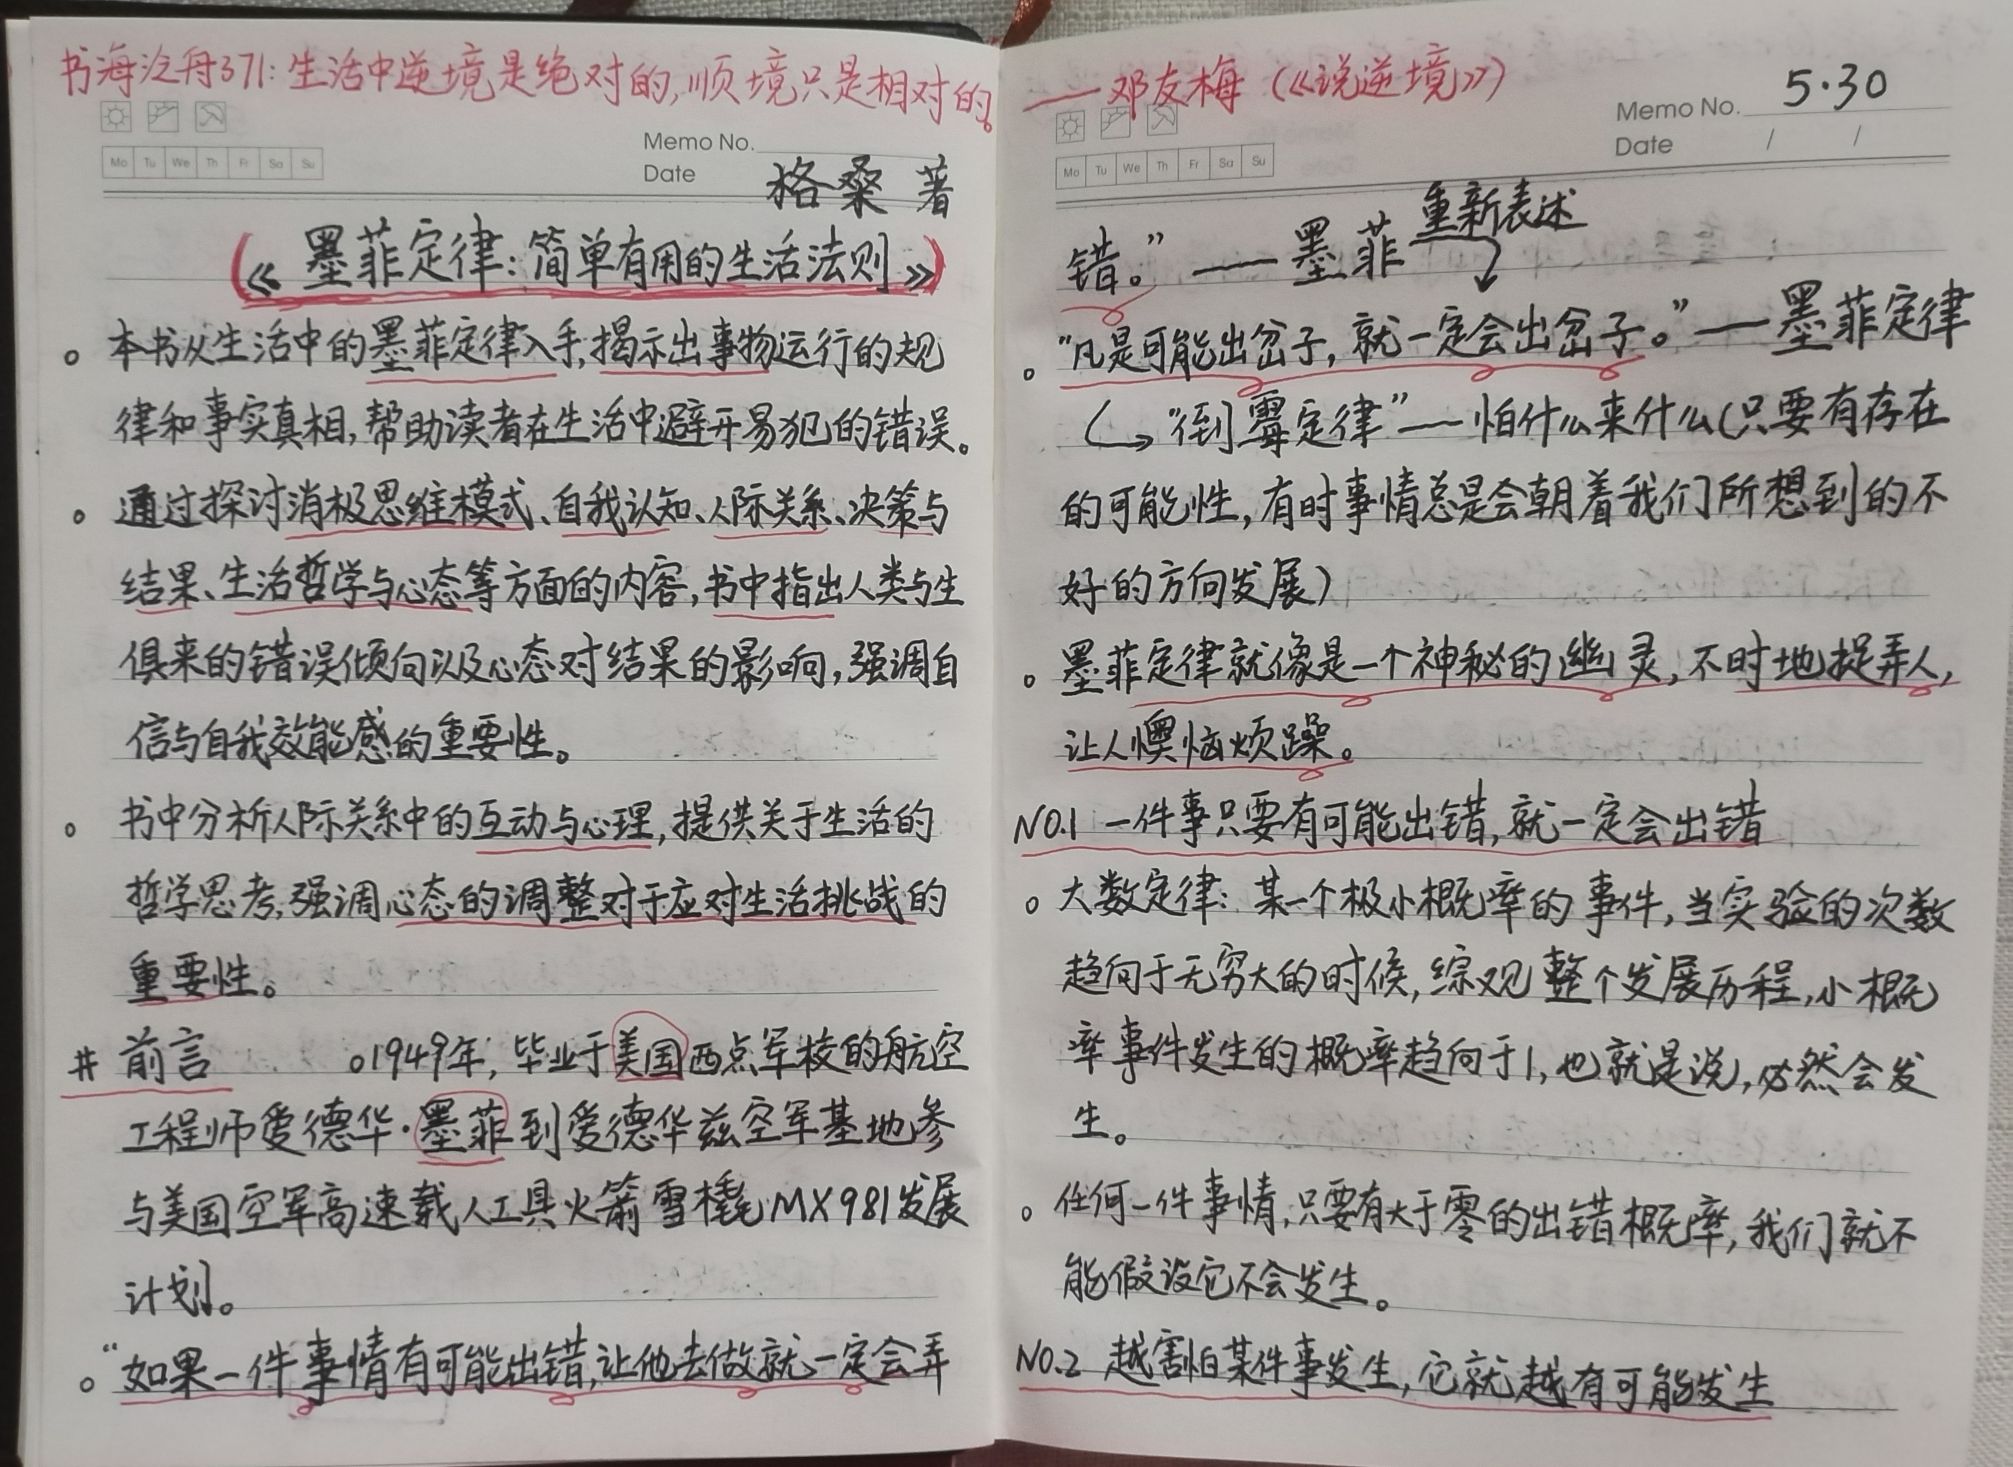 书海泛舟371：生活中逆境是绝对的，顺境只是相对的。
Memo No.
Mo Tu We Th Fr Sa Su
Date
格桑 著
（《墨菲定律：简单有用的生活法则》）
。本书从生活中的墨菲定律入手，揭示出事物运行的规
律和事实真相，帮助读者在生活中避开易犯的错误。
。通过探讨消极思维模式、自我认知、人际关系、决策与
结果、生活哲学与心态等方面的内容，书中指出人类与生
俱来的错误倾向以及心态对结果的影响，强调自
信与自我效能感的重要性。
。书中分析人际关系中的互动与心理，提供关于生活的
哲学思考，强调心态的调整对于应对生活挑战的
重要性。
# 前言 。1949年，毕业于美国西点军校的航空
工程师爱德华·墨菲到爱德华兹空军基地参
与美国空军高速载人工具火箭雪橇MX981发展
计划。
。“如果一件事情有可能出错，让他去做就一定会弄
——邓友梅（《说逆境》）
Memo No. 5·30
Mo Tu We Th Fr Sa Su
Date / /
错。”——墨菲 重新表述
。“凡是可能出岔子，就一定会出岔子。”——墨菲定律
“倒霉定律”——怕什么来什么（只要有存在
的可能性，有时事情总是会朝着我们所想到的不
好的方向发展）
。墨菲定律就像是一个神秘的幽灵，不时地捉弄人，
让人懊恼烦躁。
NO.1 一件事只要有可能出错，就一定会出错
。大数定律：某一个极小概率的事件，当实验的次数
趋向于无穷大的时候，综观整个发展历程，小概
率事件发生的概率趋向于1，也就是说，必然会发
生。
。任何一件事情，只要有大于零的出错概率，我们就不
能假设它不会发生。
NO.2 越害怕某件事发生，它就越有可能发生